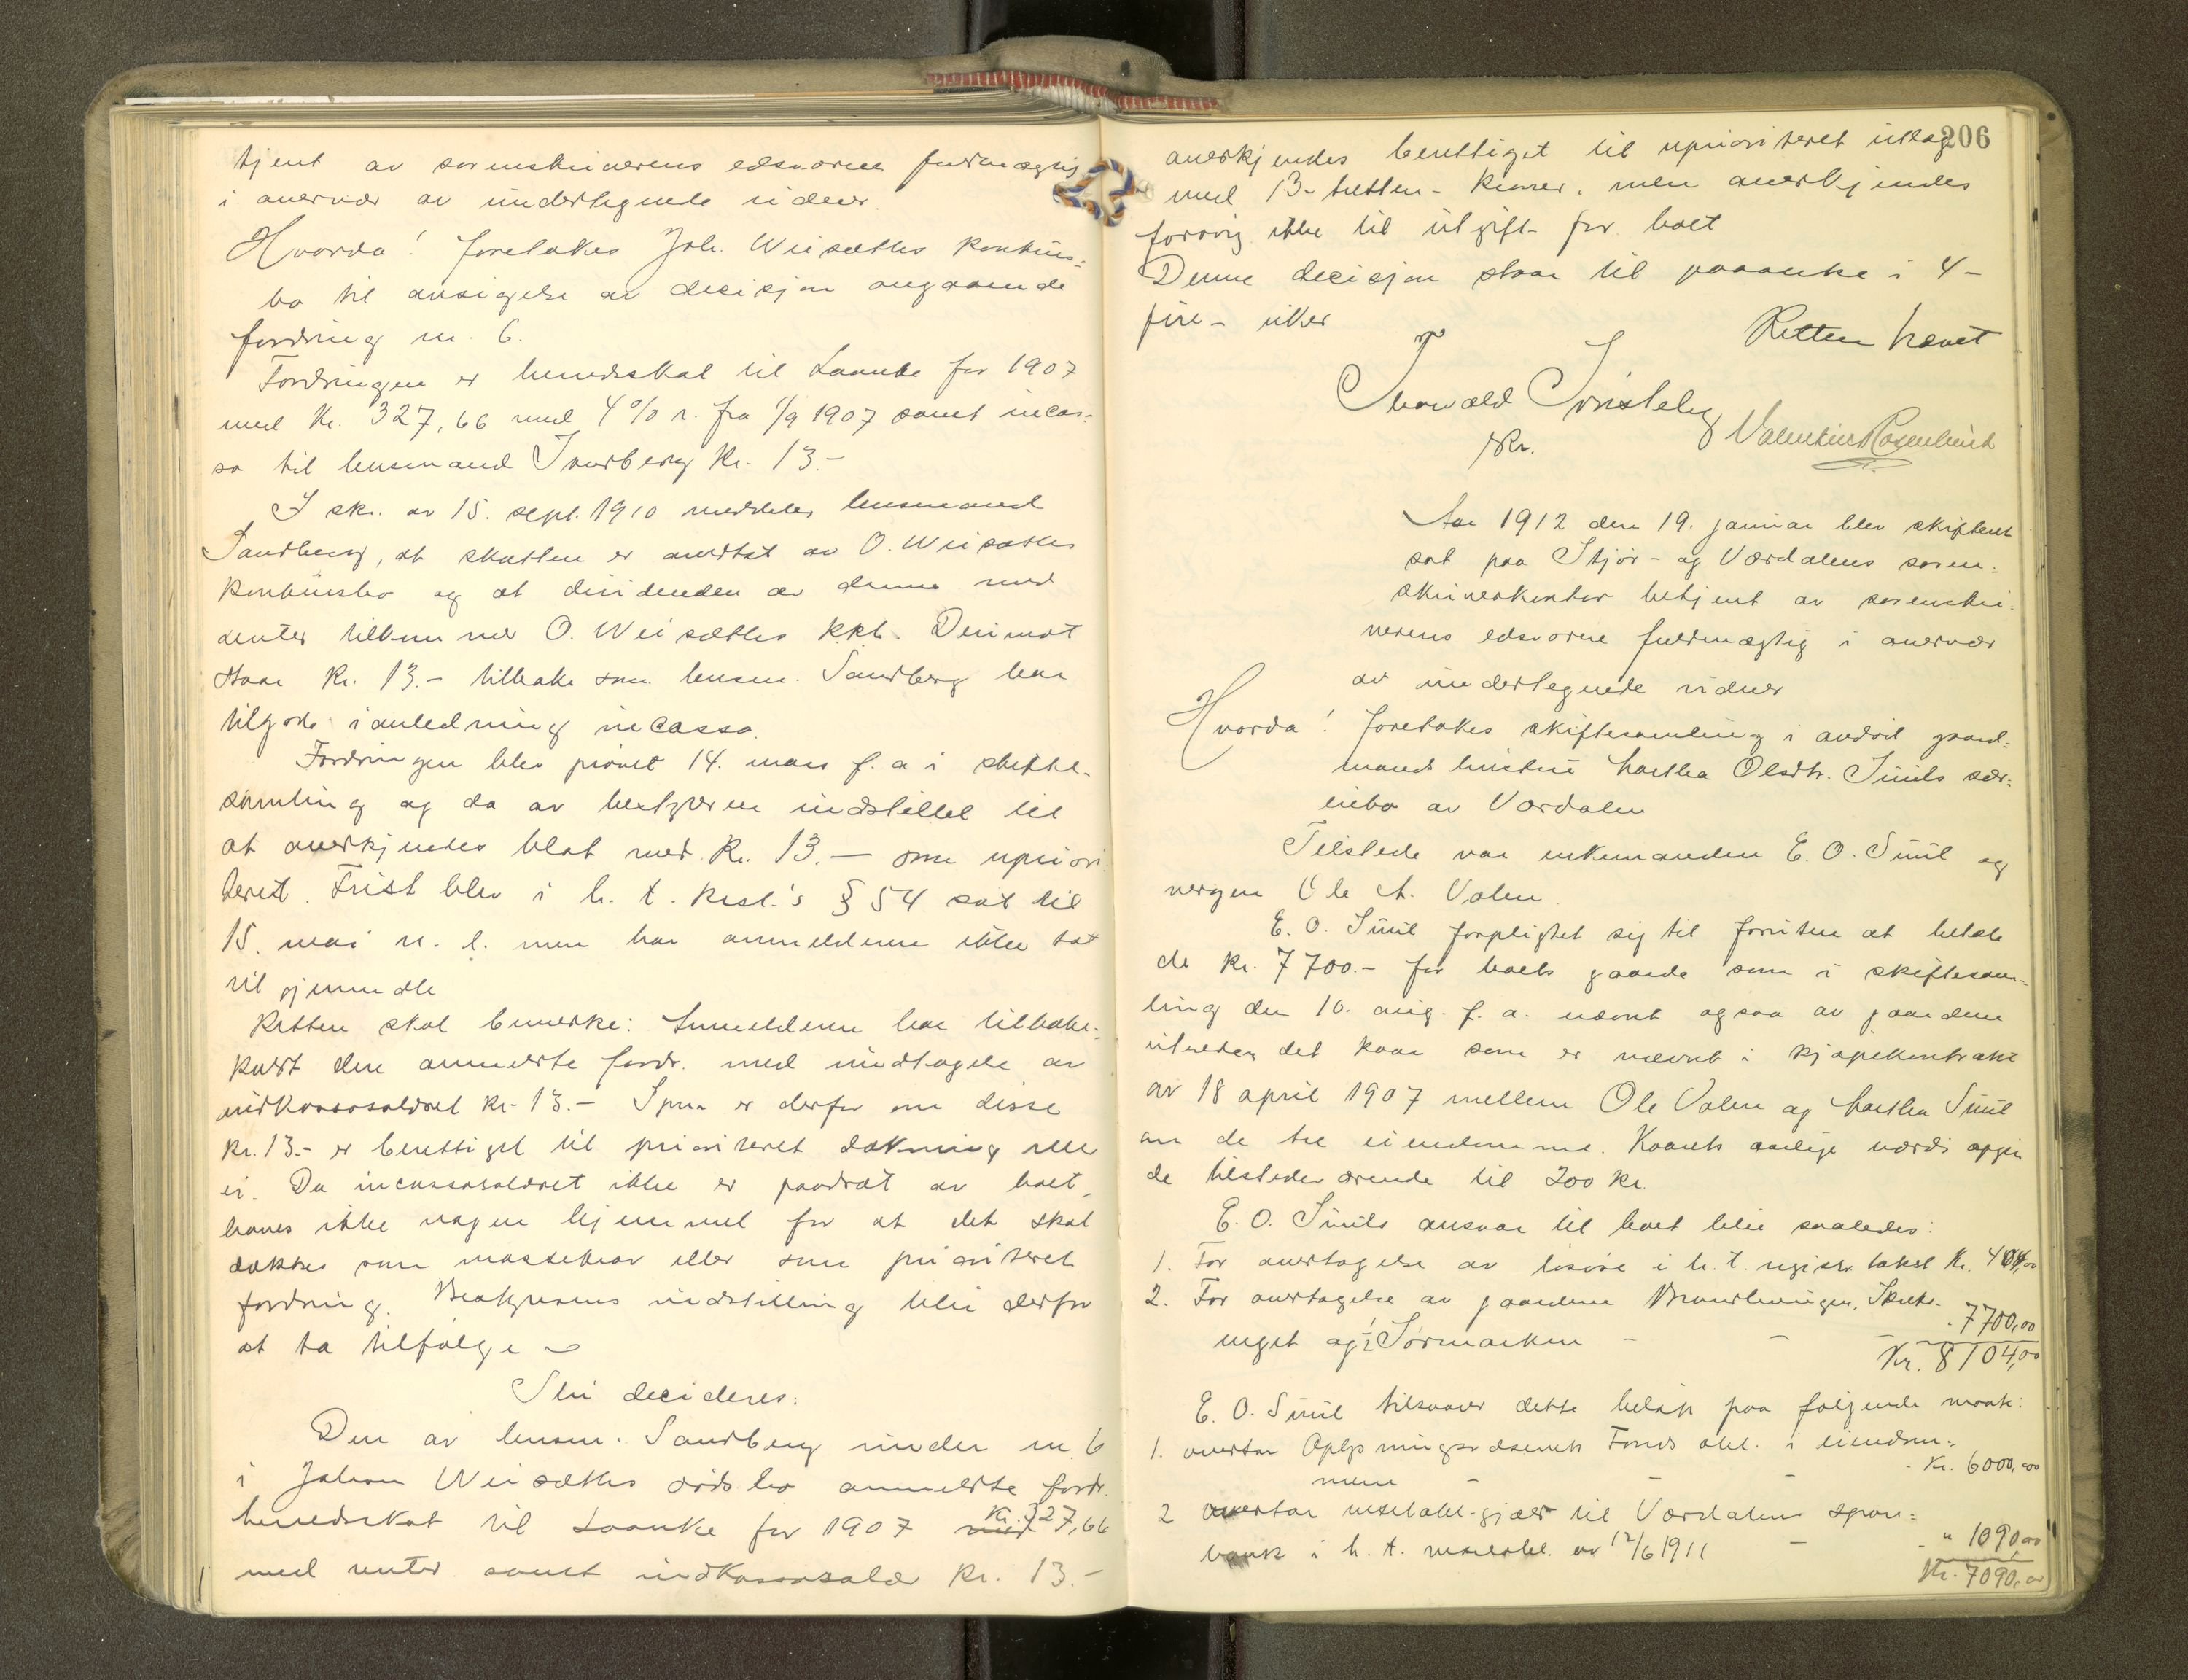 tjent av sorenskriverens edsvorne fuldmægtig
i overvær av undertegnede vidner.
Hvorda! foretakes Joh. Weisæths konkurs-
bo til avsigelse av decisjon angaaende
fordring nr. 6.
Fordringen er herredsskat til Laanke for 1907
med Kr. 327,66 med 4% r. fra 1/9 1907 samt incas-
so til lensmand Sandberg Kr. 13.-
I skr. av 15. sept. 1910 meddeles lensmand
Sandberg, at skatten er overtat av O. Weisæths
konkursbo og at dividenden av denne med
renter tilkommer O. Weisæths kkb. Derimot
staar Kr. 13.- tilbake som lensm. Sandberg har
tilgode i anledning incasso.
Fordringen blev prøvet 14. mars f. a. i skifte-
samling og da av bestyreren indstillet til
at anerkjendes blot med Kr. 13.— som upriori-
teret. Frist blev i h. t. kksl.'s § 54 sat til
15. mai n. l. men har anmelderne ikke tat
til gjenmæle
Retten skal bemerke: Anmelderen har tilbake-
kaldt den anmeldte fordr. med undtagelse av
indkassosalæret Kr. 13.- Spm. er derfor om disse
Kr. 13.- er berettiget til prioriteret dækning eller
ei. Da incassosalæret ikke er paadrat av boet,
haves ikke nogen hjemmel for at det skal
dækkes som massekrav eller som prioriteret
fordring. Bestyrerens indstilling blir derfor
at ta tilfølge
Thi decideres:
Den av lensm. Sandberg under nr. 6
i Johan Weisæths dødsbo anmeldte fordr.
herredsskat til Laanke for 1907 Kr. 327,66
med renter samt indkassosalær Kr. 13.-
206
anerkjendes berettiget til uprioriteret utlæg
med 13- tretten- kroner, men anerkjendes
forøvrig ikke til utgift for boet
Denne decisjon staar til paaanke i 4-
fire- uker
Retten hævet
Thorvald Tønseth
/Kr.
Valentin Rosenlund
Aar 1912 den 19. januar blev skifteret
sat paa Stjør- og Værdalens soren-
skriverkontor betjent av sorenskri-
verens edsvorne fuldmægtig i overvær
av undertegnede vidner
Hvorda! foretakes skiftesamling i avdød gaard-
mands hustru Martha Olsdtr. Suuls sær-
eiebo av Værdalen
Tilstede var enkemanden E. O. Suul og
vergen Ole A. Volen
E. O. Suul forpligtet sig til foruten at betale
de Kr. 7700.- for boets gaarde som i skiftesam-
ling den 10. aug. f. a. nævnt ogsaa av gaardene
utreder det kaar som er nævnt i kjøpekontrakt
av 18 april 1907 mellem Ole Volen og Martha Suul
om de tre eiendomme. Kaarets aarlige værdi opgir
de tilstedeværende til 200 kr.
E. O. Suuls ansvar til boet blir saaledes:
1. For overtagelse av løsøre i h. t. registr. takst Kr. 404,00
2. For overtagelse av gaardene
enget og ½ Sørmarken - - - 7700,00
Kr. 8104,00
E. O. Suul tilsvarer dette beløp paa følgende maate:
1. overtar Oplysningsvæsenets Fonds obl. i eiendom-
mene - - - Kr. 6000,00
2 overtar vekselobl.-gjæld til Værdalens spare-
bank i h. t. vekselobl. av 12/6 1911 - - " 1090,00
Kr. 7090,00